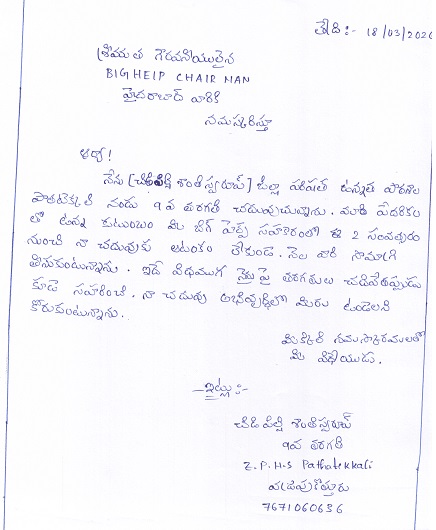 తేది:- 18/03/2020
శ్రీమత గౌరవనీయులైన
BIGHELP CHAIRMAN
హైదరాబాద్ వారికి
నమస్కరిస్తూ
ఆర్యా!
నేను [చిడిపిల్లి శాంతిస్వరూప్] జిల్లా పరిషత్ ఉన్నత పాఠశాల
పాతటెక్కలి నందు 9వ తరగతి చదువుచున్నాను. మాది పేదరికం
లో ఉన్న కుటుంబం మీ బిగ్ హెల్ప్ సహకారంతో ఈ 2 సంవత్సరం
నుంచి నా చదువుకు ఆటంకం లేకుండ. నెల వారి సామాగ్రి
తీసుకుంటున్నాను. ఇదే విధముగ పై తరగతులు చదివేటప్పుడు
కూడ సహకరించి. నా చదువు అభివృద్ధిలో మీరు ఉండాలని
కోరుకుంటున్నాను.
మిక్కిలి నమస్కారములతో
మీ విధేయుడు.
-ఇట్లు:-
చిడిపిల్లి శాంతిస్వరూప్
9వ తరగతి
Z.P.H.S Pathatekkali
వజ్రపుకొత్తూరు
7671060636